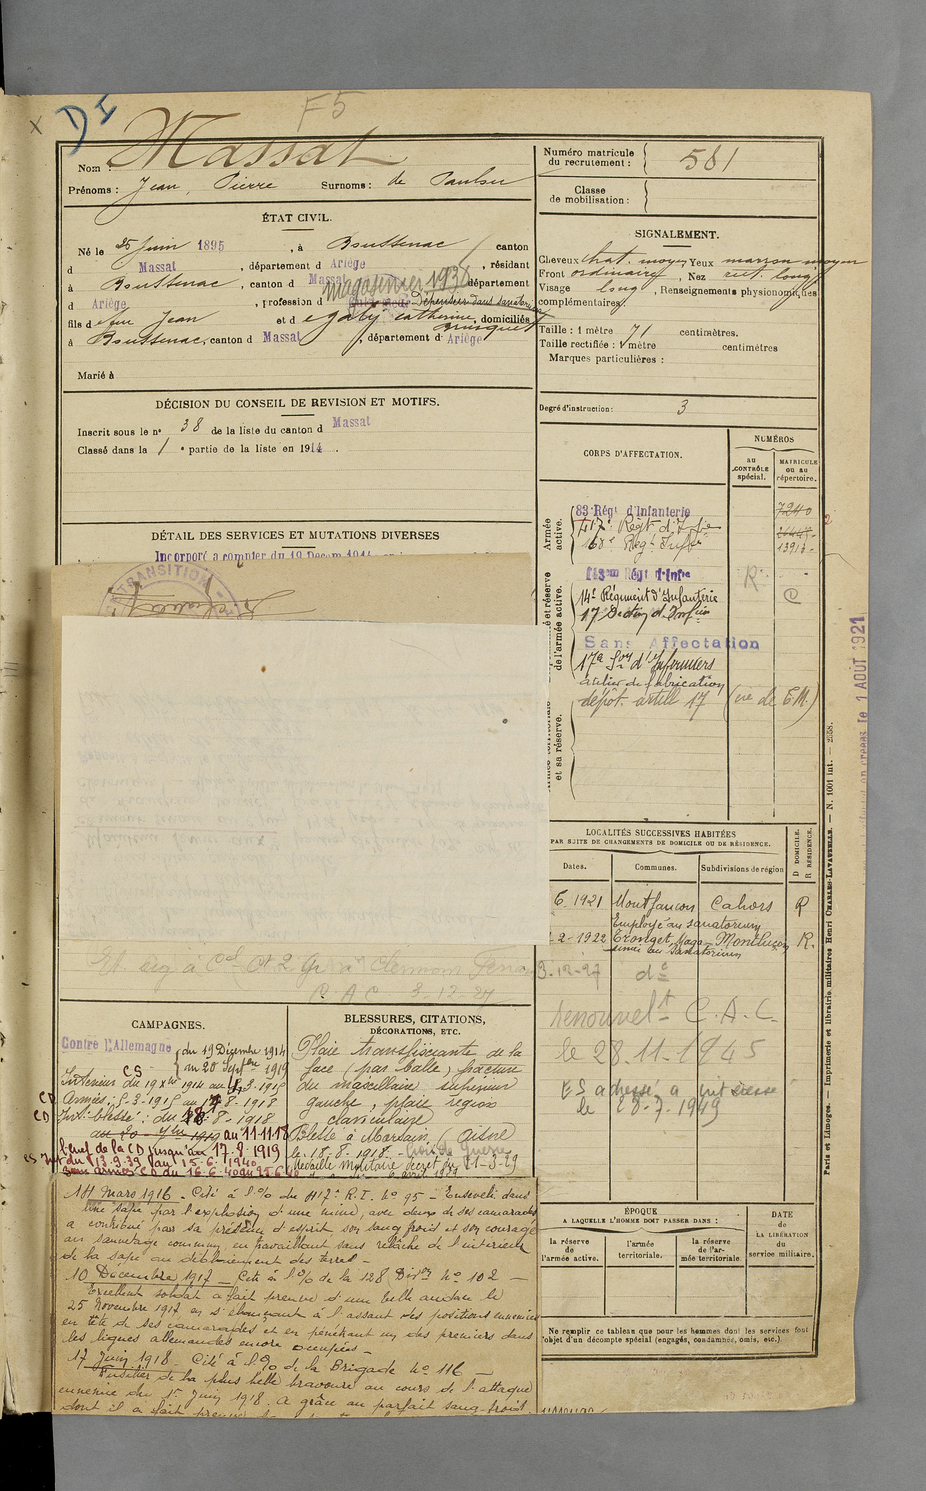 DI
F5
x
Nom : Massat
Prénoms : Jean, Pierre Surnoms : de
Numéro matricule du recrutement : 581
Classe de mobilisation :
ÉTAT CIVIL.
Né le 25 Juin 1895, à Boussenac canton
d Massat, département d Ariège, résidant
à Boussenac, canton d Massat département
magasinier 1936
d Ariège, profession d Dépensier dans sanatorium
fils d feu Jean et d Galy Catherine, domiciliés
à Boussenac, canton d Massat, département d Ariège
Marié à
SIGNALEMENT.
Cheveux chat. moyen Yeux marron moyen
Front ordinaire, Nez rect. long
Visage long, Renseignements physionomiques
complémentaires:
Taille : 1 mètre 71 centimètres.
Taille rectifiée : 1 mètre centimètres
Marques particulières :
Degré d'instruction : 3
DÉCISION DU CONSEIL DE REVISION ET MOTIFS.
Inscrit sous le nº 38 de la liste du canton d Massat
Classé dans la 1e partie de la liste en 1914.
DÉTAIL DES SERVICES ET MUTATIONS DIVERSES
Incorporé a compter du 19 Décem 1914
TRANSITION
CORPS D'AFFECTATION.
NUMÉROS
au CONTRÔLE spécial.
MATRICULE ou au répertoire.
Armée active.
83 Régt d'Infanterie 7240
417e Régt d'Inf ie
168e Régt Inf ie 13913
et réserve de l'armée active.
Régt d'Infie R C
14e Régiment d'Infanterie
17e Section d'
Sans Affectation
et sa réserve.
17e Son d'Infirmiers
Atelier de fabrication
dépôt artill 17 (vre de E.M.)
1 AOUT 1921
LOCALITÉS SUCCESSIVES HABITÉES
PAR SUITE DE CHANGEMENTS DE DOMICILE OU DE RÉSIDENCE.
Dates. Communes. Subdivisions de région D DOMICILE. R RÉSIDENCE.
6-1921 Montfaucon Cahors R
Employé au sanatorium
2-1922 Tronget Montluçon R.
au Sanatorium
3-12-27 do
Renouvelt C.A.C.
le 28.11-1945
ES adressé à
le 28-7-1949
C.A.C 3-12-27
Paris et Limoges. — Imprimerie et librairie militaires Henri CHARLES-LAVAUZELLE. — N. 1001 int. — 2558.
CAMPAGNES.
Contre l'Allemagne du 19 Décembre 1914
au 20 Septbre 1919
CS
Intérieur du 19 Xbre 1914 au 4-3-1915
CD Armées: 5-3-1915 au 17-8-1918
CD Int. blessé : du 18-8-1918
au 20 7bre 1919 au 11-11-18
benef de la CD jusqu'au 17.8.1919
Int du 13.9.39 au 15-6-1940
aux armées CD du 16.6.40 au 25.6.40
BLESSURES, CITATIONS,
DÉCORATIONS, ETC.
Plaie transfixiante de la
face (par balle) fracture
du maxillaire supérieur
gauche, plaie région
claviculaire
Blessé à Morsain (Aisne)
le 18-8-1918. - Croix de Guerre
Médaille militaire décret du 21-3-29
14 mars 1916 - Cité à l'% du 417e R.I. Nº 95 - Enseveli dans
une sape par l'explosion d'une mine, avec deux de ses camarades
a contribué par sa présence d'esprit son sang froid et son courage
au sauvetage commun, en travaillant sans relâche de l'intérieur
de la sape au déblaiement des terres -
10 Décembre 1917 - Cité à l'% de la 128 Divon Nº 102 -
Excellent soldat a fait preuve d'une belle audace le
25 Novembre 1917 en s'élançant à l'assaut des positions ennemies
en tête de ses camarades et en pénétrant un des premiers dans
les lignes allemandes encore occupées -
17 Juin 1918 - Cité à l'% de la Brigade Nº 116 -
Fusilier de la plus belle bravoure au cours de l'attaque
ennemie du 1er Juin 1918. a grâce au parfait sang-froid
dont il a fait preuve
ÉPOQUE
A LAQUELLE L'HOMME DOIT PASSER DANS :
DATE de LA LIBÉRATION du service militaire.
la réserve de l'armée active.
l'armée territoriale.
la réserve de l'armée territoriale.
Ne remplir ce tableau que pour les hommes dont les services font
l'objet d'un décompte spécial (engagés, condamnés, omis, etc.).